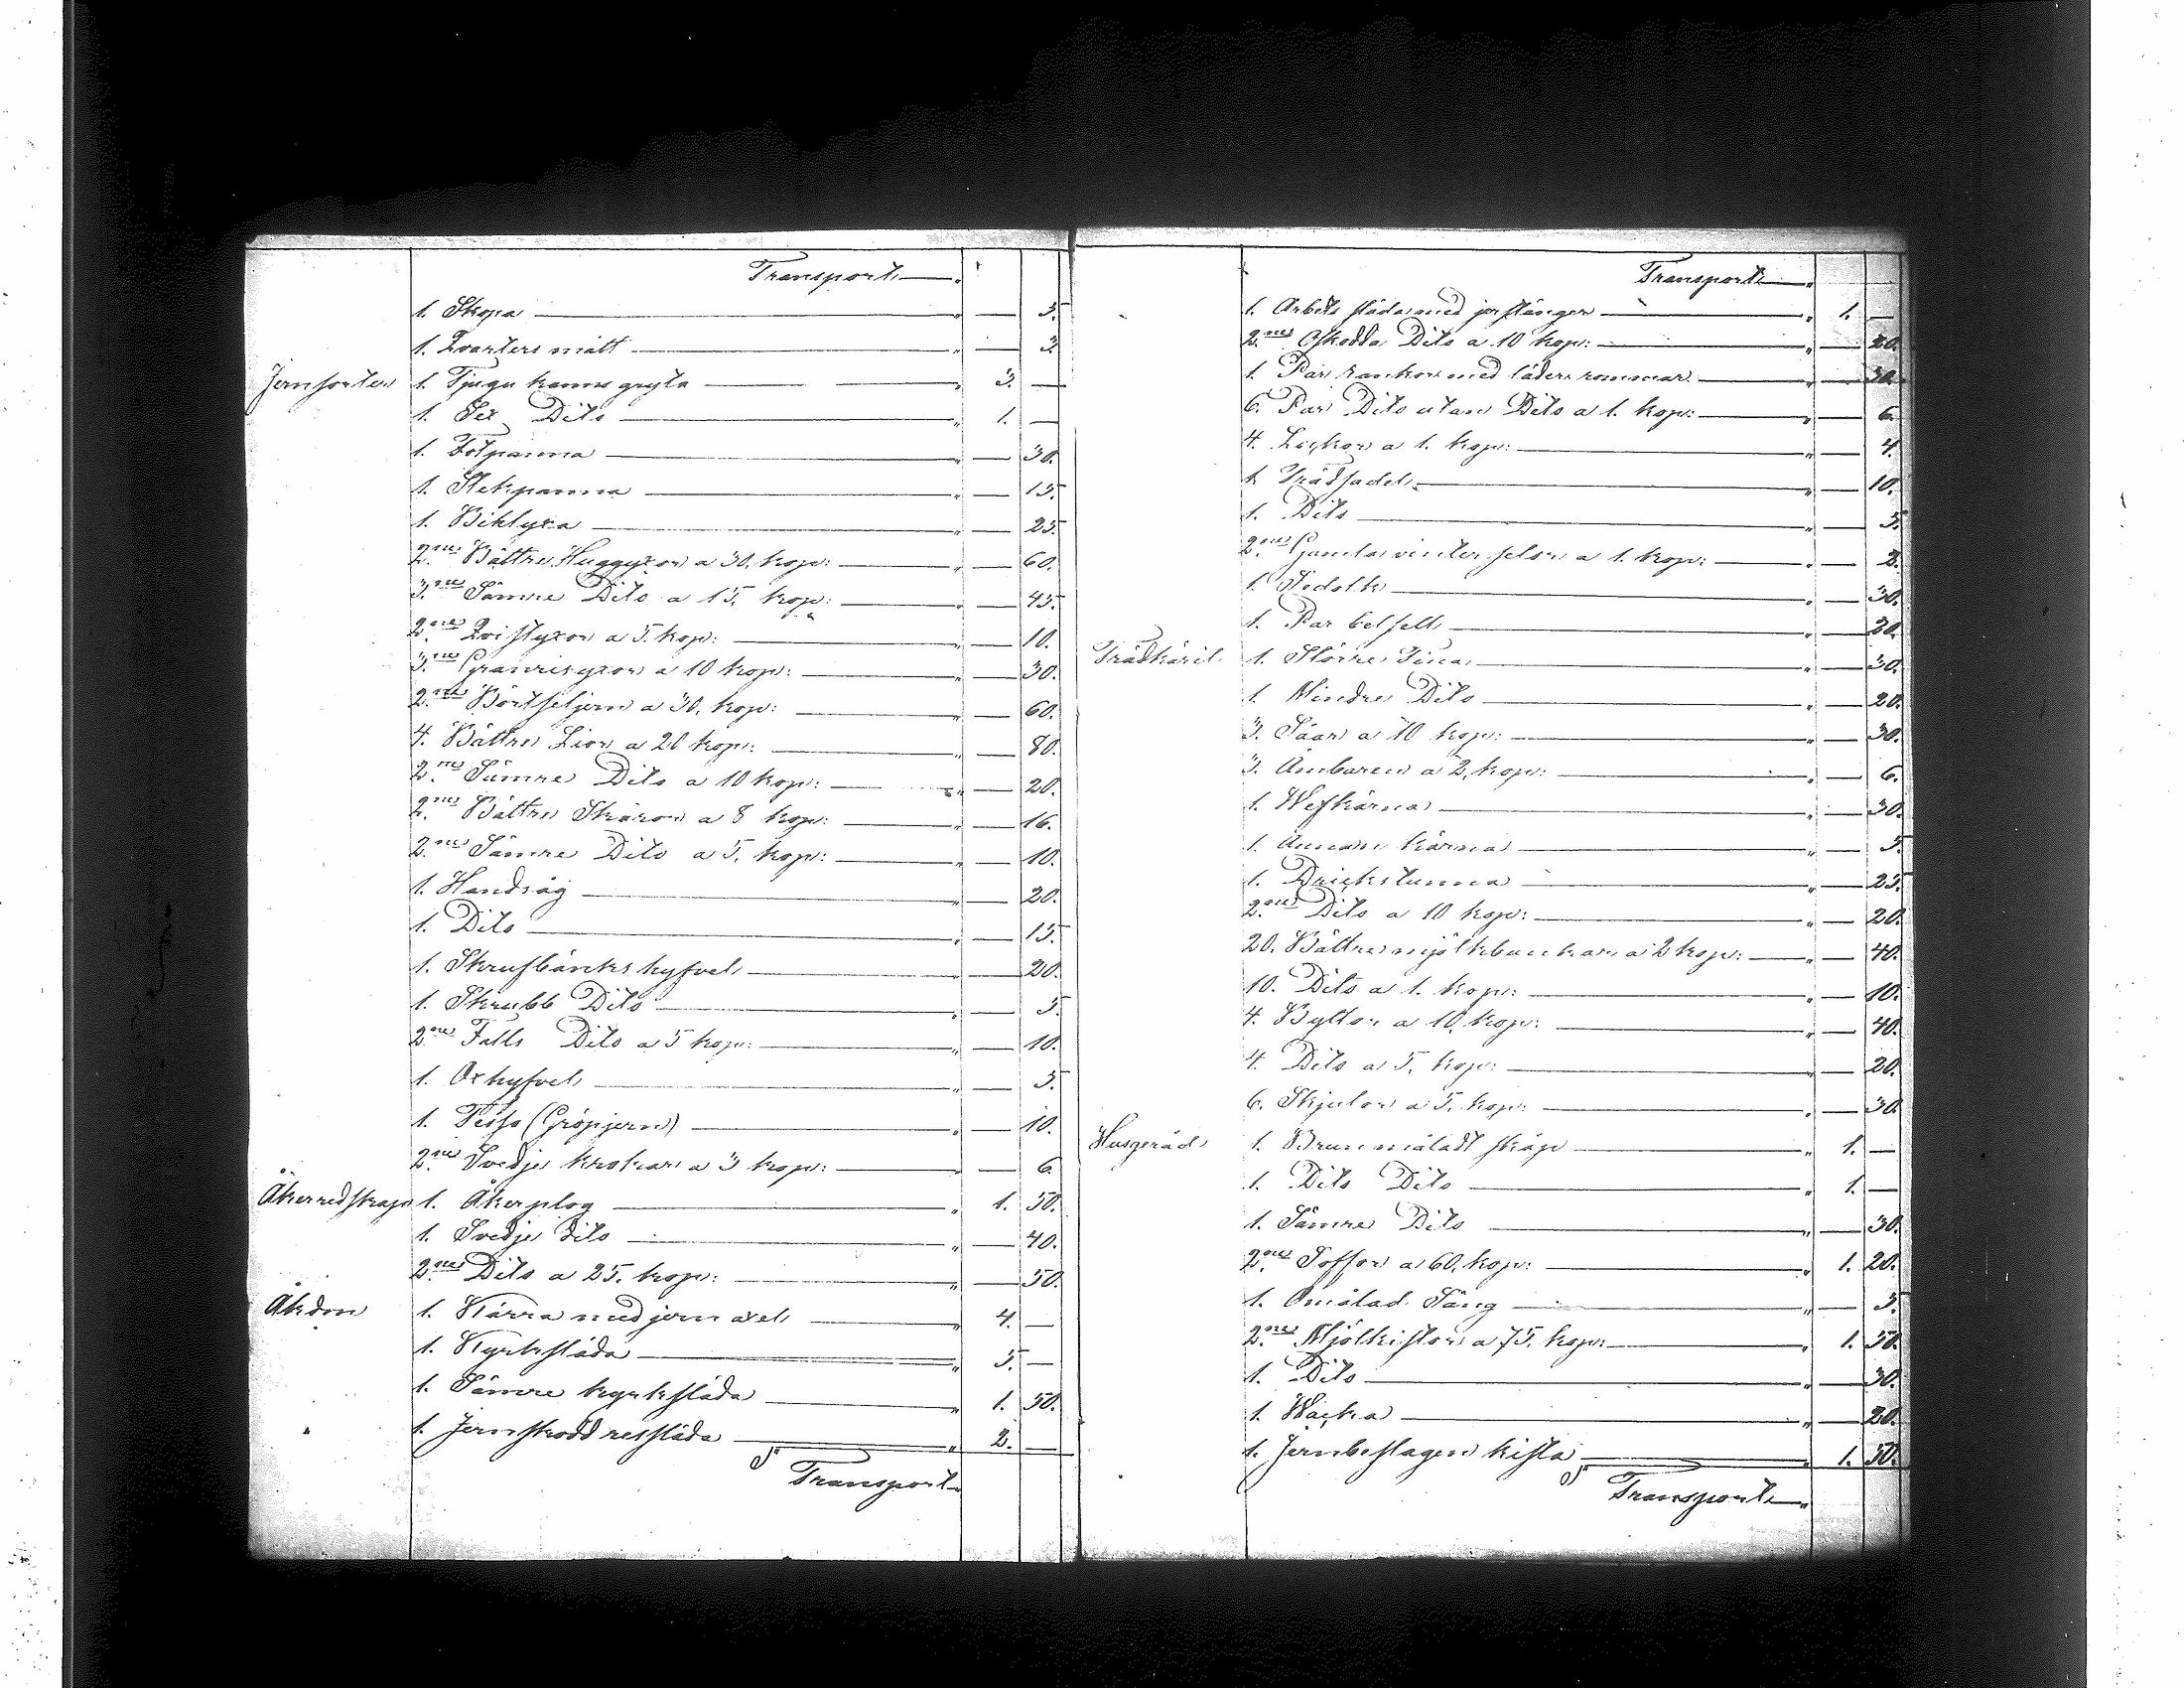 Transport
1. Skopa — 5.
1. Qvarters mått — 3.
Jernsorter 1. Tjugu kanns gryta 3. —
1. Sex Dito 1. —
1. Fotpanna — 30.
1. Stekpanna — 15.
1. Biklyxa — 25.
2ne Bättre Huggyxor a 30. kop: — 60.
3ne Sämre Dito a 15. kop: — 45.
2ne Qvistyxor a 5. kop: — 10.
3ne Granrisyxor a 10 kop: — 30.
2ne a 30. kop: — 60.
4. Bättre Lior a 20 kop: — 80.
2ne Sämre Dito a 10 kop: — 20.
2ne Bättre Skäror a 8 kop: — 16.
2ne Sämre Dito a 5. kop: — 10.
1. Handsåg — 20.
1. Dito — 15.
1. Skrufbänks hyfvel — 20.
1. Skrubb Dito — 5.
2ne Falls Dito a 5 kop: — 10.
1. Oxhyfvel — 3.
1. (Gröpjern) — 10.
2ne Svedje krokar a 3 kop: — 6.
Åkerredskap 1. Åkerplog 1. 50.
1. Svedje dito — 40.
2ne Dito a 25. kop: — 50.
Åkdon 1. Kärra med jern axel 4. —
1. Kyrksläda 5. —
1. Sämre kyrksläda 1. 50.
1. Jernskodd ressläda 2. —
Transport
Transport
1. Arbets släda med jernstänger 1. —
2ne Oskodda Dito a 10 kop: — 20.
1. Par rankor med läders rommar — 30.
6. Par Dito utan Dito a 1. kop: — 6.
4. a 1. kop: — 4.
1. Trädsadel — 10.
1. Dito — 5.
2ne Gamla vinter selar a 1. kop: — 2.
1. Sedolk — 30.
1. Par — 20.
Trädkäril 1. Större Tina — 30.
1. Mindre Dito — 20.
3. Såar a 10 kop: — 30.
3. Ämbaren a 2. kop: — 6.
1. Wefkärna — 30.
1. Annan kärna — 5.
1. Drickstunna — 25.
2ne Dito a 10 kop: — 20.
20. Bättre mjölkbunkar a 2 kop: — 40.
10. Dito a 1. kop: — 10.
4. Byttor a 10. kop: — 40.
4. Dito a 5. kop: — 20.
6. Skjulor a 5. kop: — 30.
Husgeråd 1. Brunmåladt skåp 1. —
1. Dito Dito 1. —
1. Sämre Dito — 30.
2ne Soffor a 60. kop: 1. 20.
1. Omålad Säng — 5.
2ne Mjölkistor a 75. kop: 1. 50.
1. Dito — 30.
1. Wacka — 20.
1. Jernbeslagen kista 1. 50.
Transport